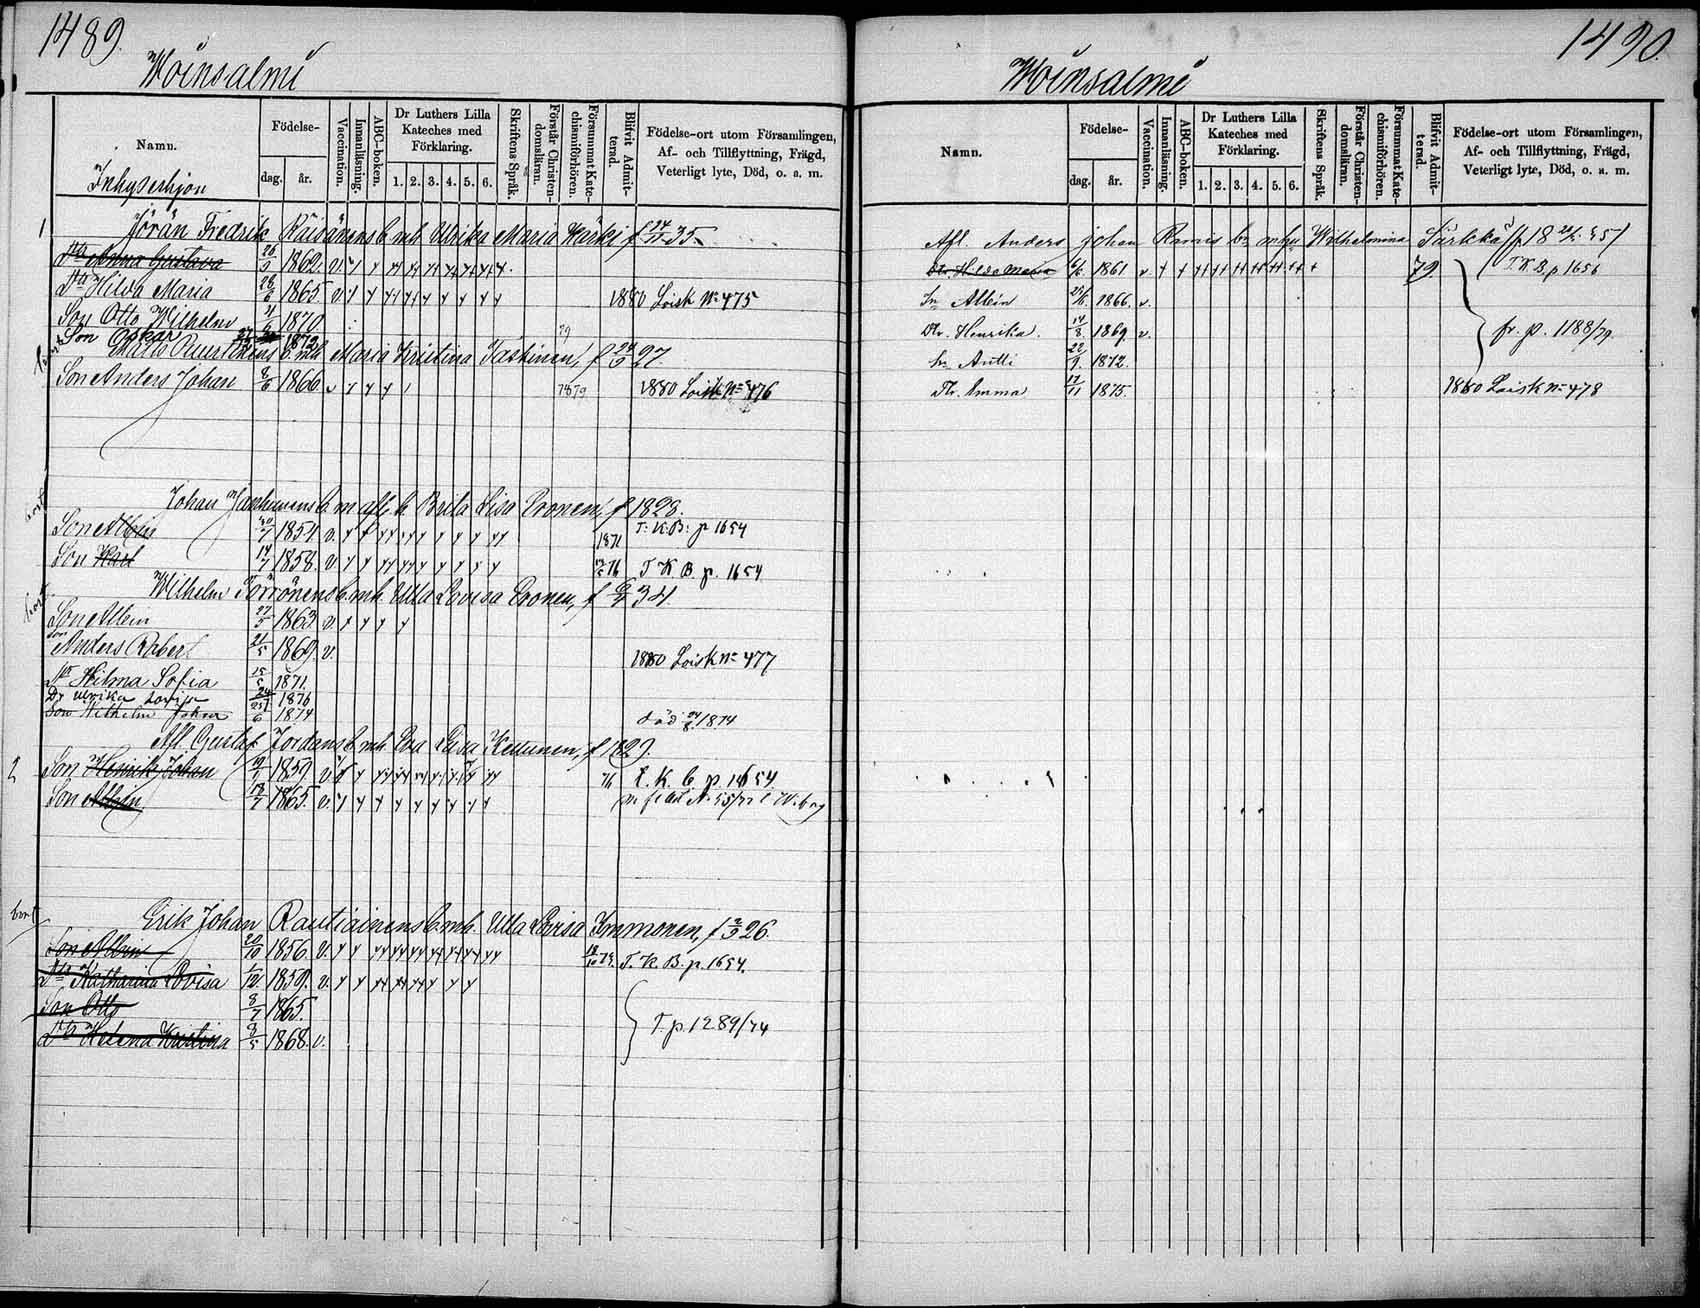 1489.
Woinsalmi
Namn.
Födelse-
dag. år.
Vaccination.
Innanläsning.
ABC-boken.
Dr Luthers Lilla Kateches med Förklaring.
1. 2. 3. 4. 5. 6.
Skriftens Språk.
Förstår Christendomsläran.
Försummat Katechismiförhören.
Blifvit Admitterad.
Födelse-ort utom Församlingen, Af- och Tillflyttning, Frägd, Veterligt lyte, Död, o. a. m.
Inhyseshjon
1 Jöran Fredrik Räisänens b. mh Ulrika Maria Kärki f 24/11 35
Dtr Anna Gustava 26/9 1862. v
Dtr Hilda Maria 26/6 1865 v 1880 Loisk No 475
Son Otto Wilhelm 1870.
Son Oskar 1872
Ruuskanens b. mh Maria Kristina Jäskinen, f 24/9 27.
Son Anders Johan 8/6 1866. v 1879 1880 Loisk No 476
Johan b. m afl. h Brita Lisa Pronen, f 1828.
Son Albin 1854 v. 1871 T. K. B. p 1654
Son Karl 14/7 1858. v. 76 T K B. p. 1654
bort Wilhelm Torrönens b. mh Ulla Lovisa Pronen, f 34
Son Albin 27/5 1863. v.
Son Anders Robert 21/5 1869. v. 1880 Loisk No 477
Dtr Hilma Sofia 15/5 1871.
Dr Ulrika 1876
Son Wilhelm Johan 25/6 1874 död 1874
Afl Gustaf Jordans b. mh Eva Lisa Kettunen, f 1829.
2 Son Henrik Johan 1859. v. 76 T. K. b. p. 1654
Son Albin 18/7 1865. v.
bort Erik Johan Rautiainens b. mh. Ulla Lovisa Immonen, f 2/3 26.
Son Albin 20/10 1856. v. T. K. B. p. 1654.
Dtr Katharina Lovisa 1859. v.
Son Otto 8/7 1865.
Dtr Helena Kristina 8/5 1868. v. T. p. 1289/74
1490.
Woinsalmi
Namn.
Födelse-
dag. år.
Vaccination.
Innanläsning.
ABC-boken.
Dr Luthers Lilla Kateches med Förklaring.
1. 2. 3. 4. 5. 6.
Skriftens Språk.
Förstår Christendomsläran.
Försummat Katechismiförhören.
Blifvit Admitterad.
Födelse-ort utom Församlingen, Af- och Tillflyttning, Frägd, Veterligt lyte, Död, o. a. m.
Afl. Anders Johan Wilhelmina Särkkä
Dr. 1861 v. 79 T. K. B. p 1656
Sn Albin 1866. v.
Dtr. Henrika. 14/8 1869. v. fr. p. 1188/79.
Sn Antti 22/9. 1872.
Dtr. Emma 17/11 1875. 1880 Loisk No 478